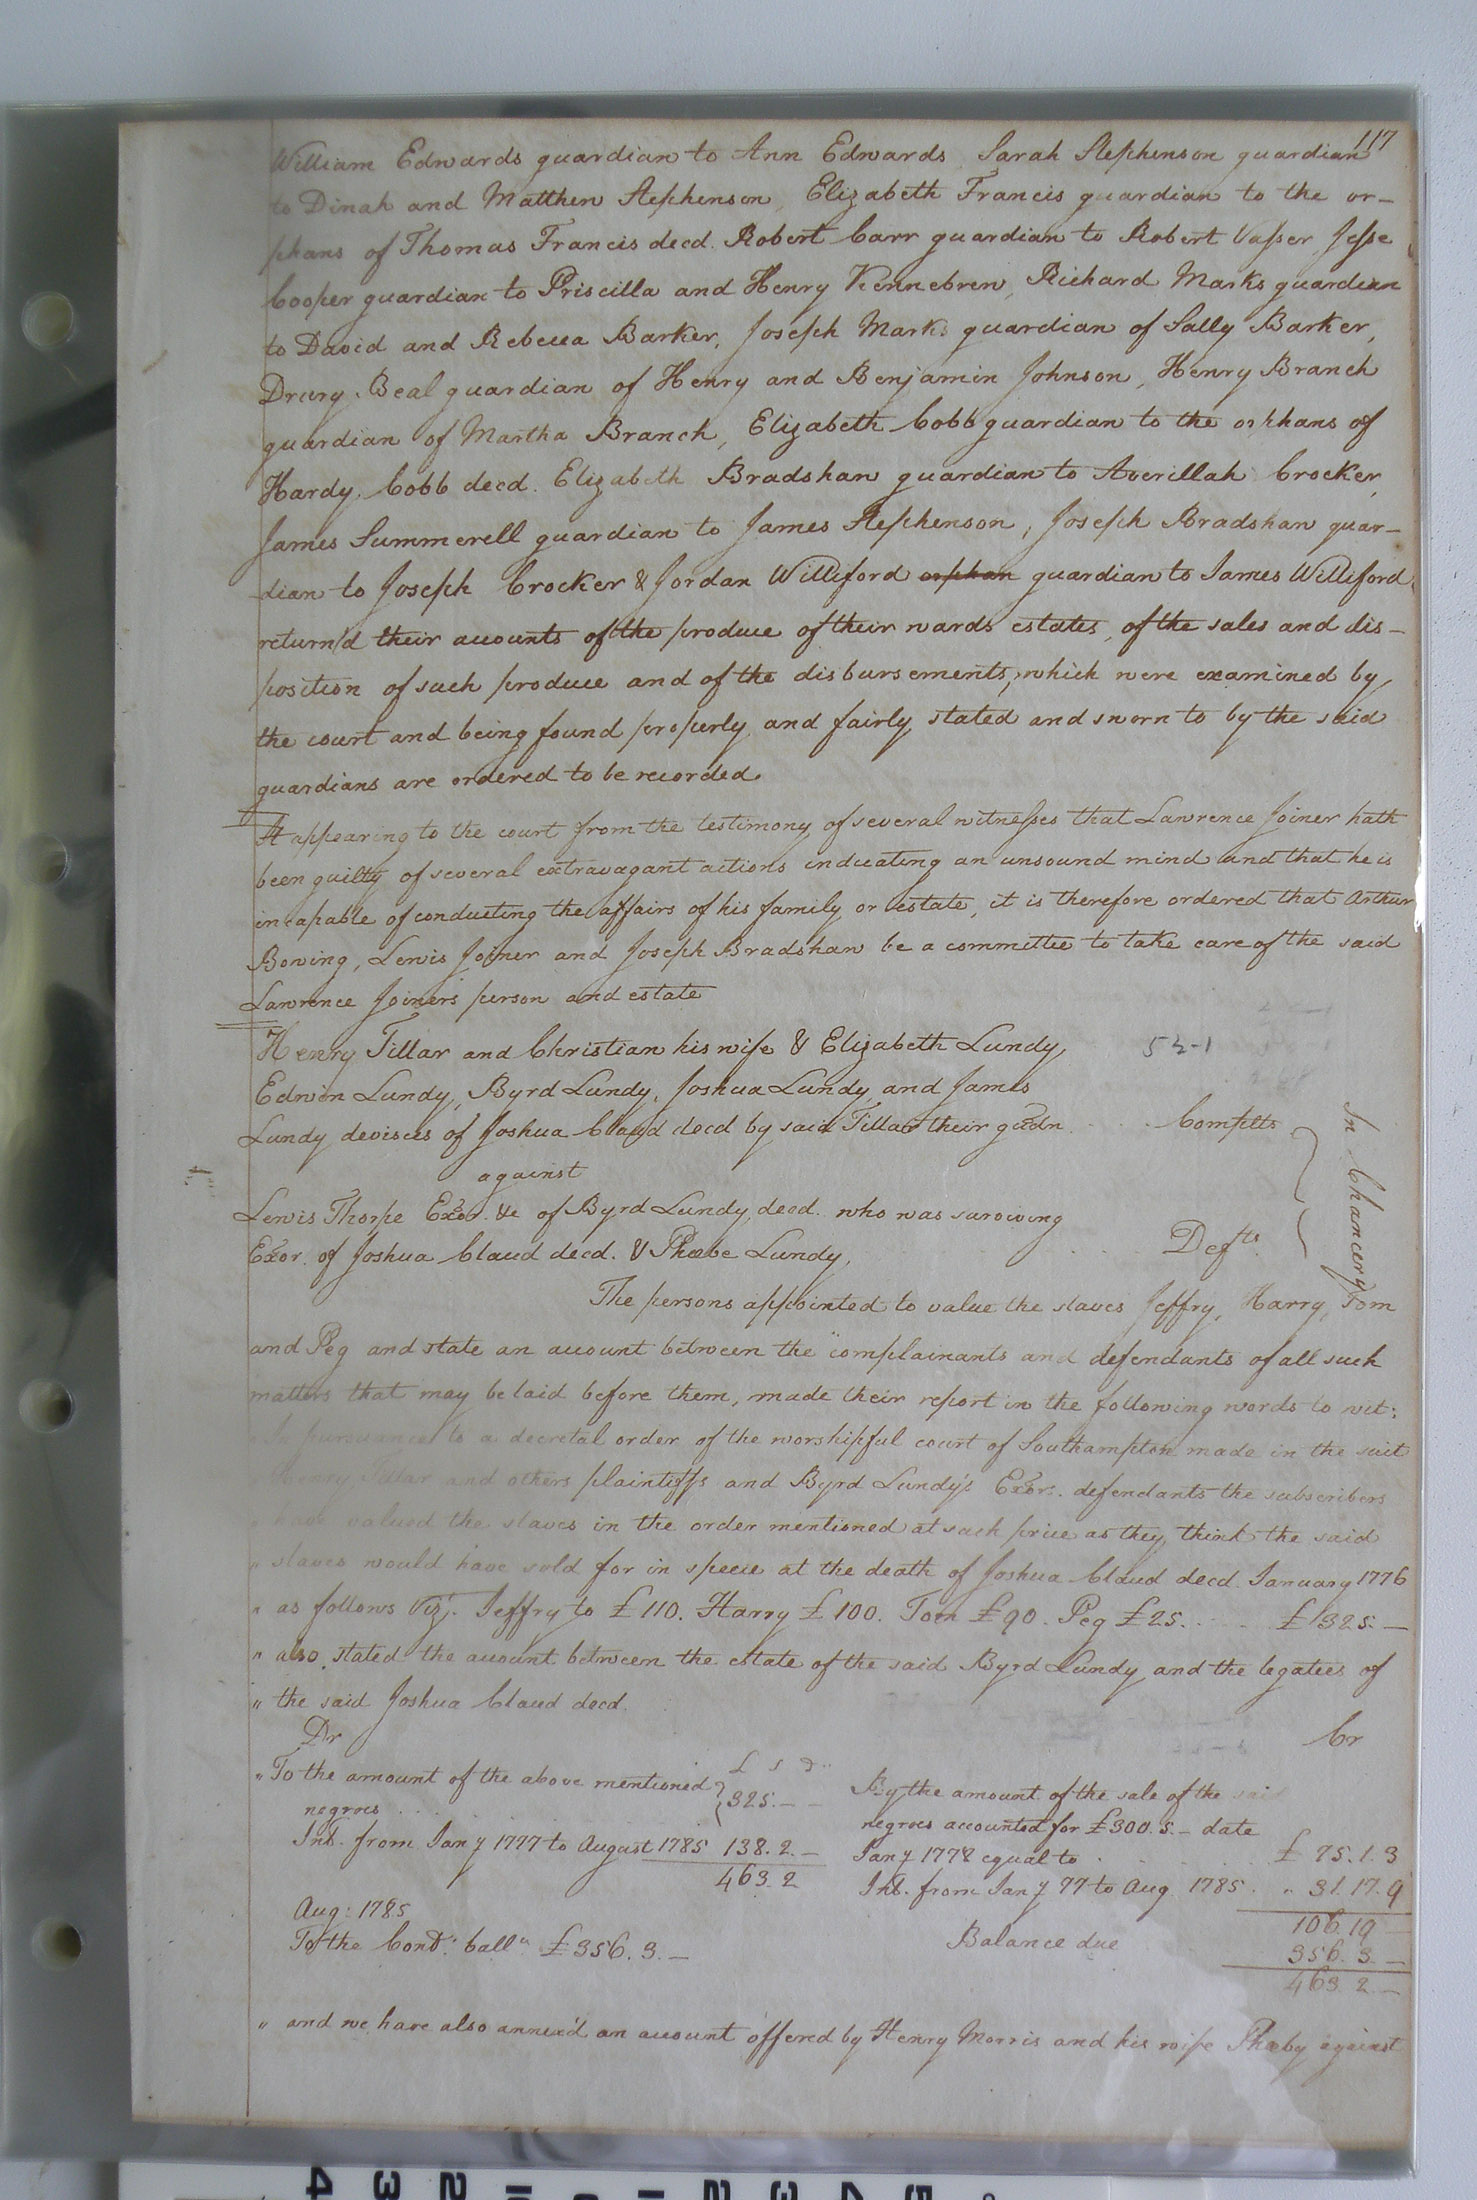 117
William Edwards guardian to Ann Edwards, Sarah Stephenson guardian
to Dinah and Matthew Stephenson, Elizabeth Francis guardian to the or-
phans of Thomas Francis decd. Robert Carr guardian to Robert Vasser, Jesse
Cooper guardian to Priscilla and Henry Kennebrew, Richard Marks guardian
to David and Rebecca Barker, Joseph Marks guardian of Sally Barker,
Drury Beal guardian of Henry and Benjamin Johnson, Henry Branch
guardian of Martha Branch, Elizabeth Cobb guardian to the orphans of
Hardy Cobb decd. Elizabeth Bradshaw guardian to Averillah Crocker,
James Summerell guardian to James Stephenson, Joseph Bradshaw guar-
dian to Joseph Crocker & Jordan Williford orphan guardian to James Williford
return'd their accounts of the produce of their wards estates, of the sales and dis-
position of such produce and of the disbursements, which were examined by
the court and being found properly and fairly stated and sworn to by the said
guardians are ordered to be recorded
It appearing to the court from the testimony of several witnesses that Lawrence Joiner hath
been guilty of several extravagant actions indicating an unsound mind and that he is
incapable of conducting the affairs of his family or estate, it is therefore ordered that Arthur
Bowing, Lewis Joiner and Joseph Bradshaw be a committee to take care of the said
Lawrence Joiners person and estate
Henry Tillar and Christian his wife & Elizabeth Lundy, 52-1
Edwin Lundy, Byrd Lundy, Joshua Lundy and James
Lundy devisees of Joshua Claud decd by said Tillar their gudn. . . . Complts
In Chancery
against
Lewis Thorpe Exor. &c of Byrd Lundy, decd. who was surviving
Exor. of Joshua Claud decd. & Phœbe Lundy, . . . Defts.
The persons appointed to value the slaves Jeffry, Harry, Tom
and Peg and state an account between the complainants and defendants of all such
matters that may be laid before them, made their report in the following words to wit:
" In pursuance to a decretal order of the worshipful court of Southampton made in the suit
" Henry Tillar and others plaintiffs and Byrd Lundy's Exors. defendants the subscribers
" have valued the slaves in the order mentioned at such price as they think the said
" slaves would have sold for in specie at the death of Joshua Claud decd. January 1776
" as follows Viz. Jeffry to £110. Harry £100. Tom £90. Peg £25. . . . £325.—
" also stated the account between the estate of the said Byrd Lundy and the legatees of
" the said Joshua Claud decd.
Dr Cr
£ s d
" To the amount of the above mentioned
negroes . . . 325.— —
Int. from Jany 1777 to August 1785 138.2.—
463.2
Aug: 1785
To the Contd. balla. £356.3.—
By the amount of the sale of the said
negroes accounted for £300.5.— date
Jany 1778 equal to . . . £75.1.3
Int. from Jany 77 to Aug. 1785. " 31.17.9
106.19 —
Balance due 356.3.—
463.2.—
" and we have also annex'd an account offered by Henry Morris and his wife Phœby against